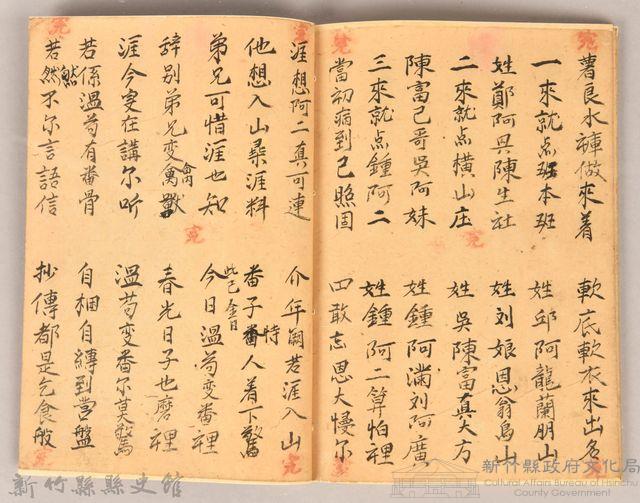 薯良水褲做來着　軟底軟衣來出名
一來就点班本班　姓邱阿龍蘭朋山
姓鄭阿興陳生社　姓刘娘恩翁烏山
二來就点橫山庄　姓吳陳富真大方
陳富己哥吳阿妹　姓鍾阿滿刘阿廣
三來就点鍾阿二　姓鍾阿二算怕裡
當初病到己照固　四敢忘恩大慢尓
涯想阿二真可連　介年閙若涯入山
他想入山尋涯料　番子番人着下驚
弟兄可惜涯也知　今日溫苟变番裡
辞别弟兄变禽獸　春光日子也磨裡
涯今变在講尔听　溫苟变番尔莫驚
若係溫苟有番骨　自梱自縛到営盤
若然不尔言語信　抄傳都是乞食般
新竹縣縣史館
新竹縣政府文化局
Cultural Affairs Bureau of Hsinchu County Government